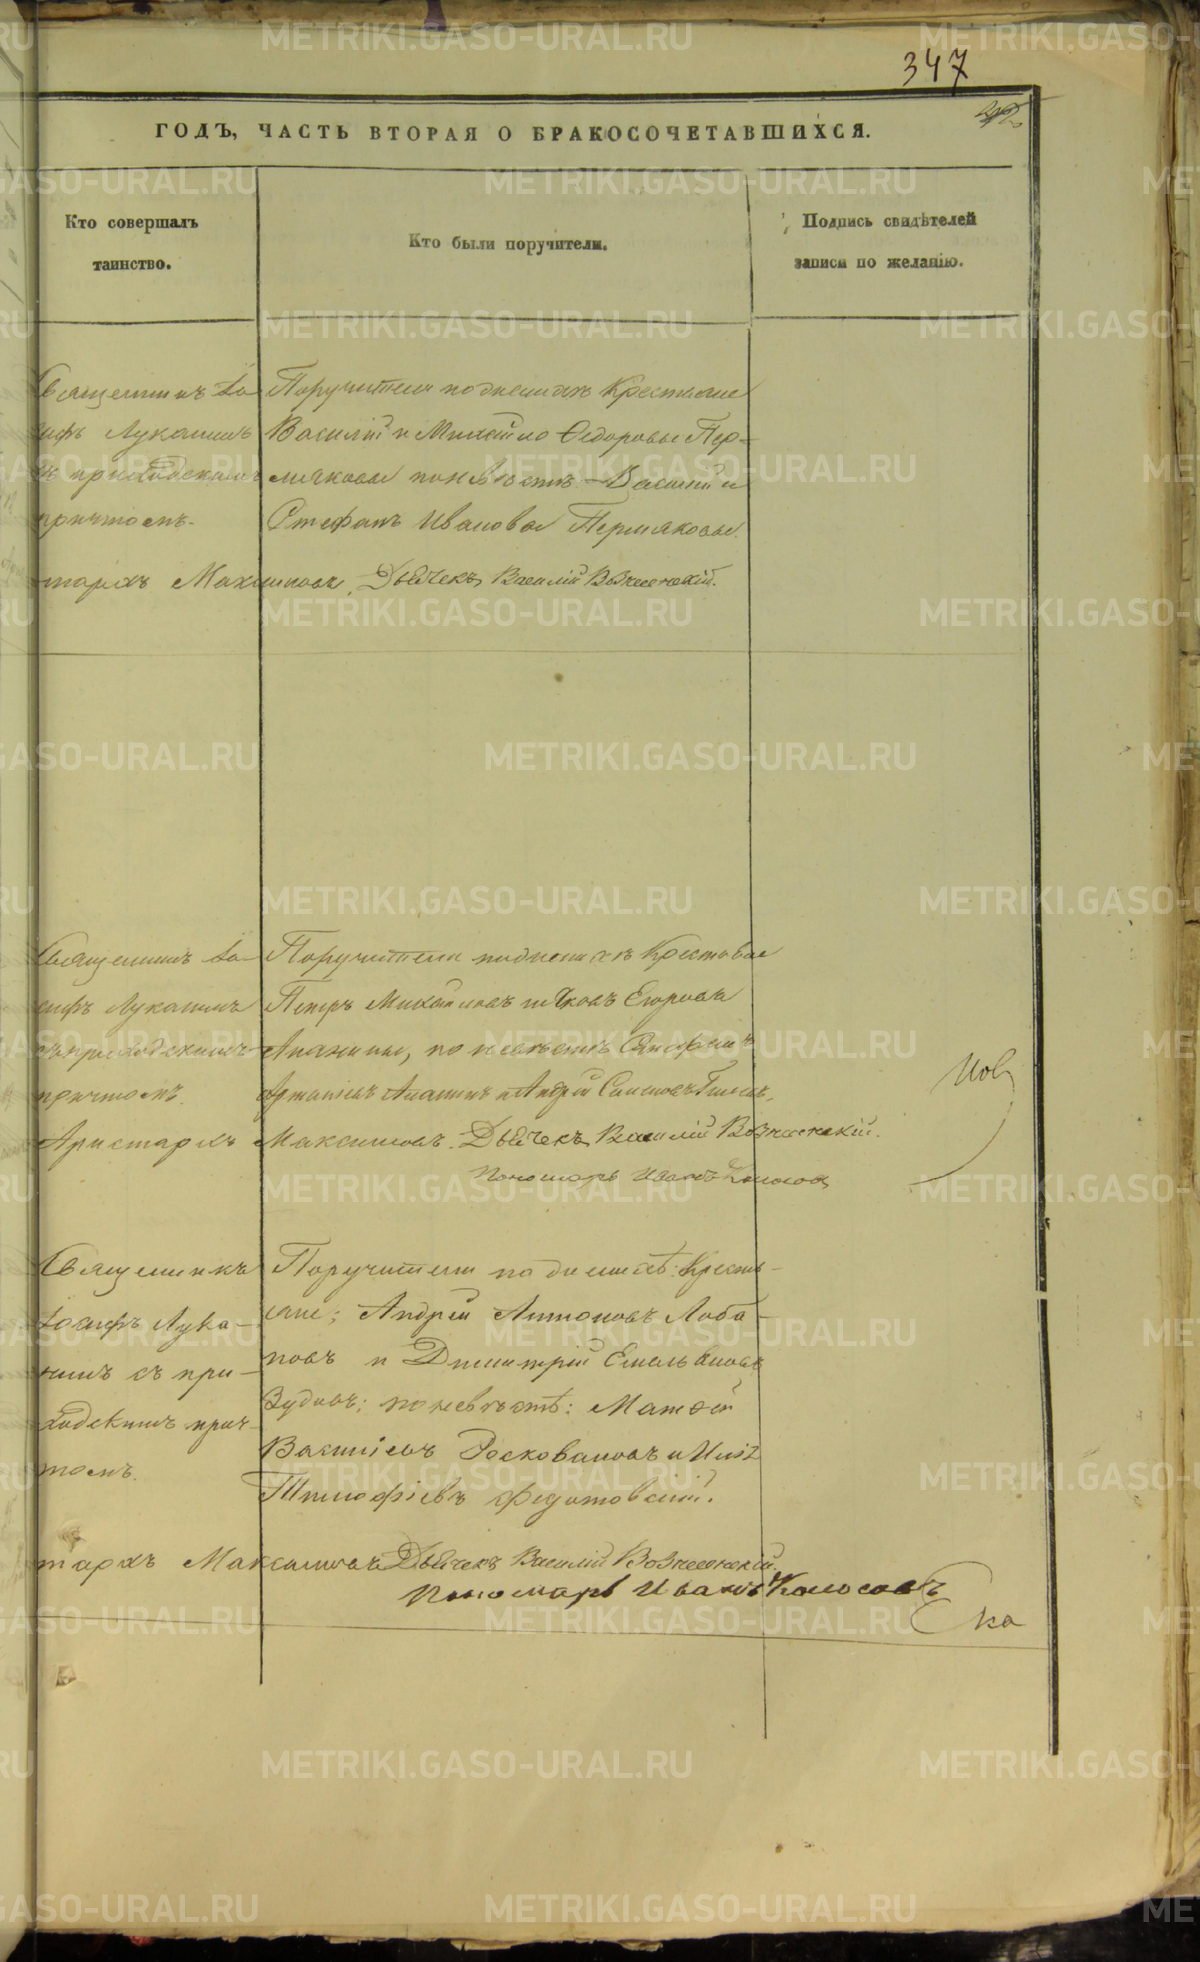 347
ГОДЪ, ЧАСТЬ ВТОРАЯ О БРАКОСОЧЕТАВШИХСЯ.
Кто совершалъ
таинство.
Кто были поручители.
Подпись свидѣтелей
записи по желанію.
Священникъ Іо-
сифъ Луканинъ
съ приходскимъ
причтомъ.
Поручители по женихѣ Крестьяне
Василій и Михайло Ѳедоровы Пер-
мяковы по невѣстѣ Василій и
Стефанъ Ивановы Пермяковы.
тархъ Максимовъ. Дьячекъ Василій Вознесенскій.
Священникъ Іо-
сифъ Луканинъ
съ приходскимъ
причтомъ.
Поручители по женихѣ Крестьяне
Петръ Михайловъ Яковъ Егоровъ
Ананины, по невѣстѣ
Ананинъ и Андрей
Аристархъ Максимовъ. Дьячекъ Василій Вознесенскій.
Пономарь Иванъ Колосовъ
Иов
Священникъ
Іосифъ Лука-
нинъ съ при-
ходскимъ прич-
томъ.
Поручители по женихѣ: Кресть-
яне; Андрей Антоновъ Лоба-
новъ и Димитрій Емельяновъ
Зудовъ; по невѣстѣ: Матѳей
Василіевъ и Илія
Тимофіевъ Федотовскій.
тархъ Максимовъ Дьячекъ Василій Вознесенскій
Пономарь Иванъ Колосовъ
ка
METRIKI.GASO-URAL.RU